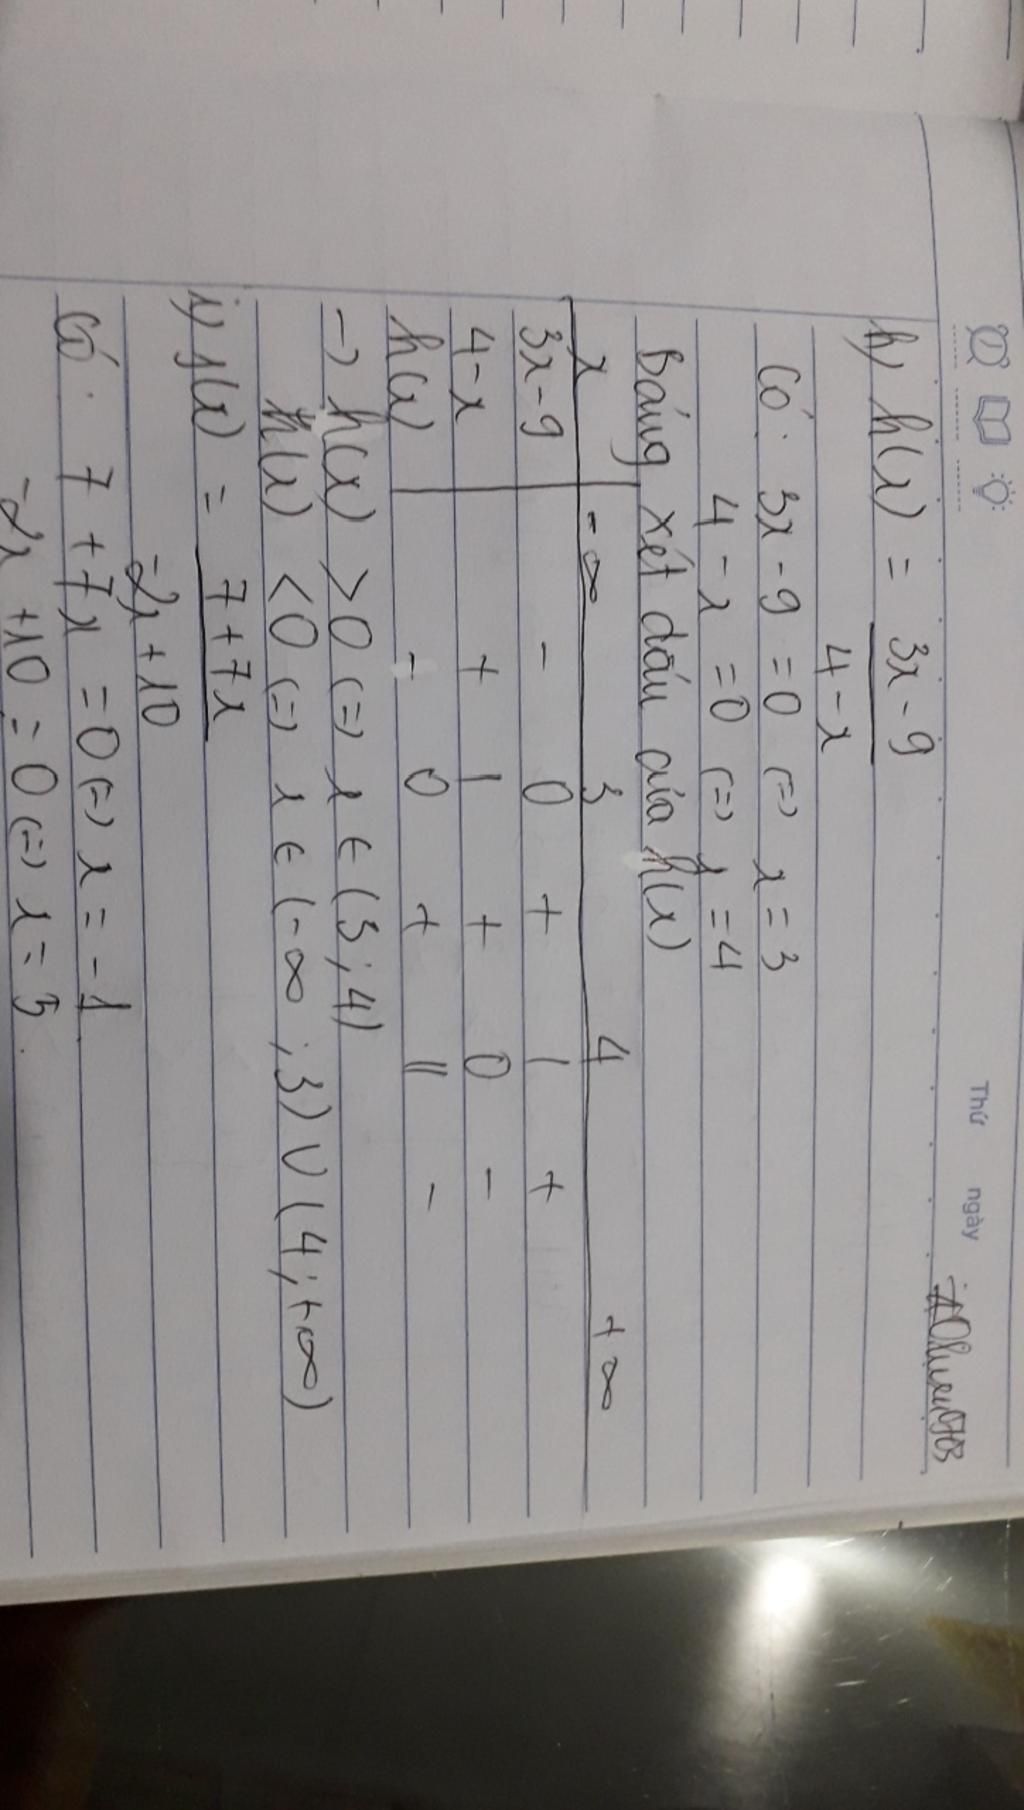 Thứ ngày
h) h(x) = 3x - 9
4 - x
Có: 3x - 9 = 0 (=) x = 3
4 - x = 0 (=) x = 4
Bảng xét dấu của h(x)
x -∞ 3 4 +∞
3x - 9 - 0 + | +
4 - x + | + 0 -
h(x) - 0 + || -
-> h(x) > 0 (=) x ∈ (3; 4)
h(x) < 0 (=) x ∈ (-∞; 3) ∪ (4; +∞)
i) j(x) = 7 + 7x
-2x + 10
Có: 7 + 7x = 0 (=) x = -1
-2x + 10 = 0 (=) x = 5